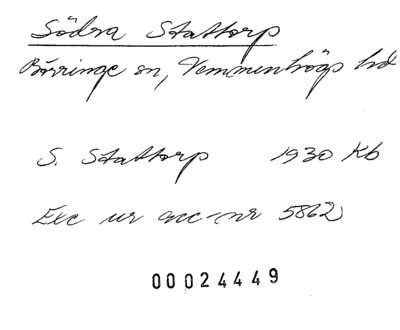 Södra Stattorp
Börringe sn, Vemmenhögs hd
S. Stattorp 1930 Kb
Exc ur acc-nr 5862
00024449